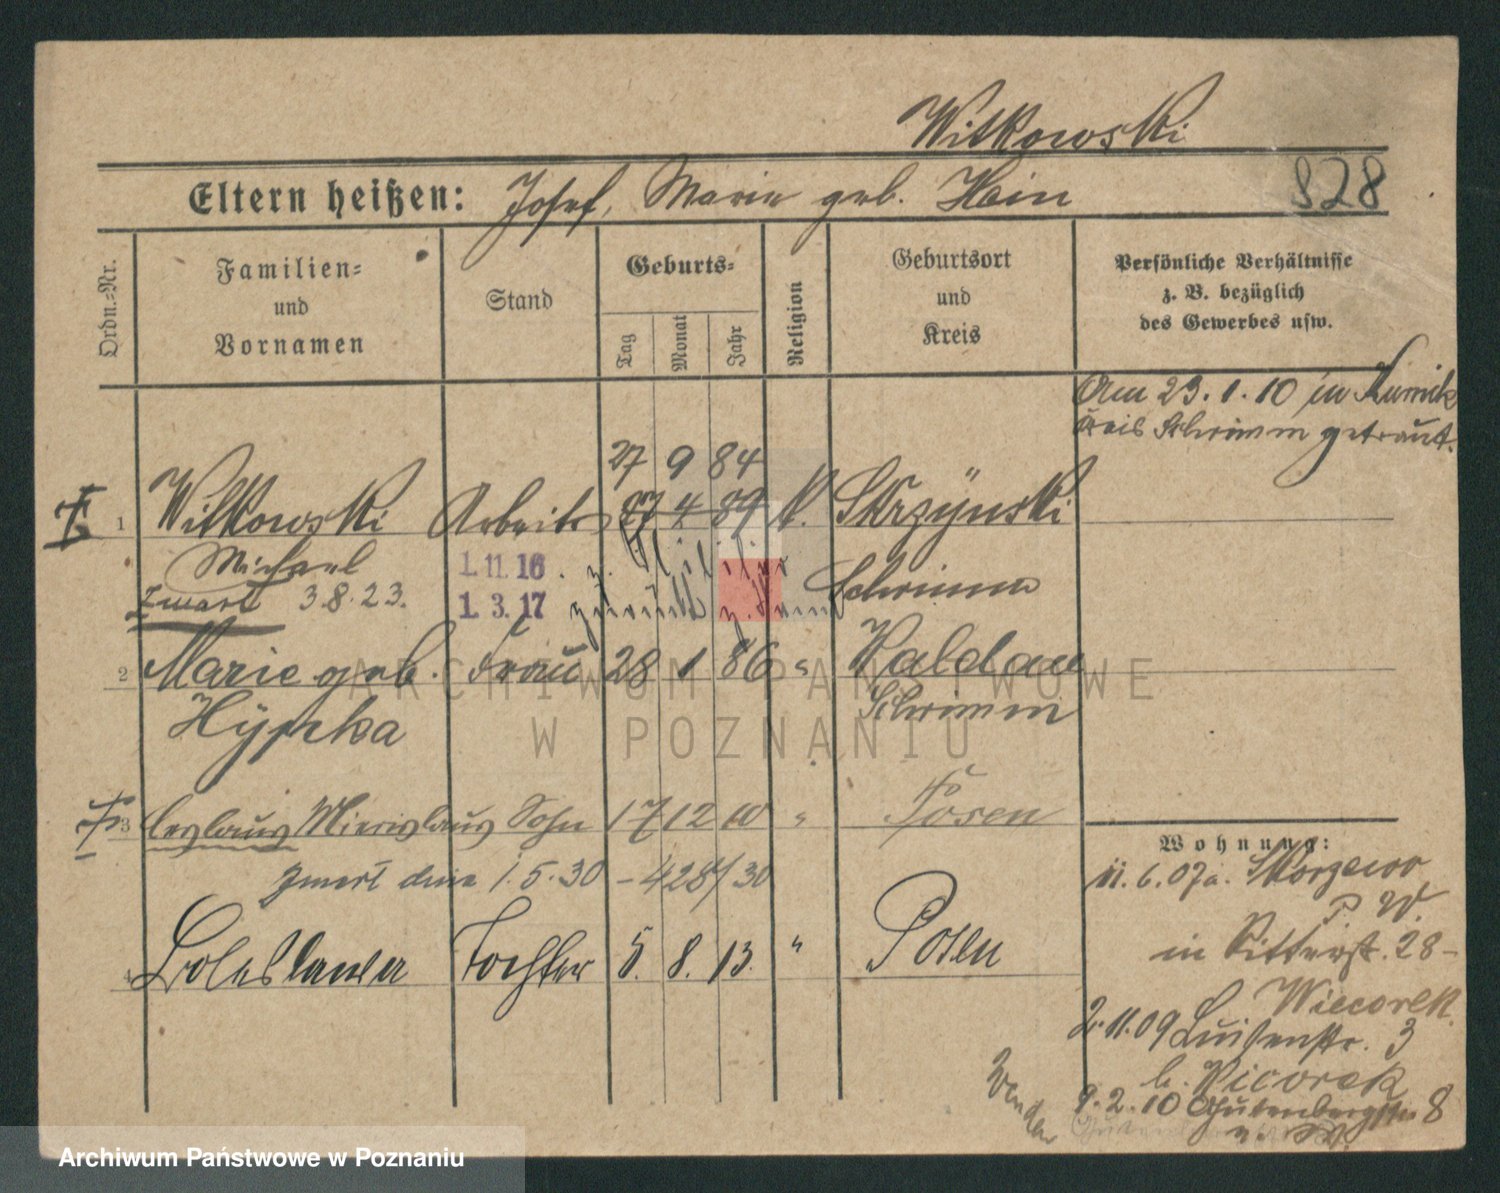 Witkowski
Eltern heißen: Josef, Marie geb. Hein
928
Ordn.-Nr.
Familien-
und
Vornamen
Stand
Geburts-
Tag
Monat
Jahr
Religion
Geburtsort
und
Kreis
Persönliche Verhältnisse
z. B. bezüglich
des Gewerbes usw.
Am 23.1.10 in Kurnik
Kreis Schrimm getraut.
27 9 84
1 Witkowski Arbeiter 27 4 89 k. Skrzynski
Michael 1.11.16. z. Militär Schrimm
zmarł 3.8.23. 1. 3. 17 zurück z.
2 Marie geb. Frau 28 1 86 " Waldau
Hypzka Schrimm
3 Ceslaus Miecislaus Sohn 17 12 10 " Posen
zmarł dnia 1.5.30 - 428/30
4 Boleslawa Tochter 5. 8. 13. " Posen
Wohnung:
11.6.07 a. Skorzewo
P. W.
in Ritterst. 28-
Wiecorek.
2.11.09 Luisenstr. 3
b. Wicorek
9.2.10 Gutenbergstr. 8
v. W.
ARCHIWUM PAŃSTWOWE
W POZNANIU
Archiwum Państwowe w Poznaniu